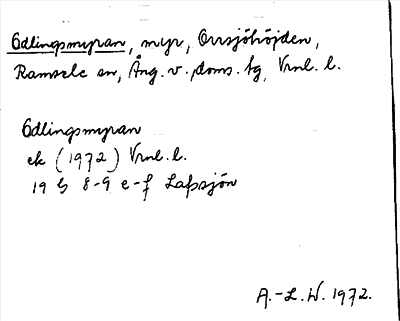 Ödlingsmyran, myr, Orrsjöhöjden,
Ramsele sn, Ång. v. doms. tg, Vrnl. l.
Ödlingsmyran
ek (1972) Vrnl. l.
19 G 8-9 e-f Lafssjön
A.-L. W. 1972.